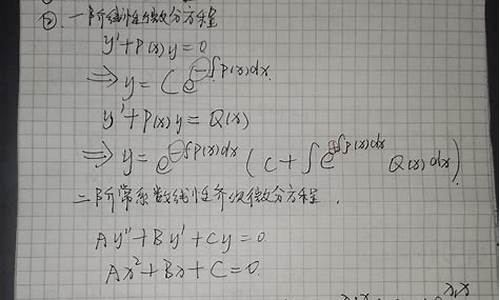 ②. 一阶线性微分方程
y'+P(x)y=0
⇒ y=Ce^{-∫P(x)dx}
y'+P(x)y=Q(x)
⇒ y=e^{-∫P(x)dx}(C+∫e^{∫P(x)dx}Q(x)dx)
二阶常系数线性齐次微分方程.
Ay''+By'+Cy=0
Ax²+Bx+C=0